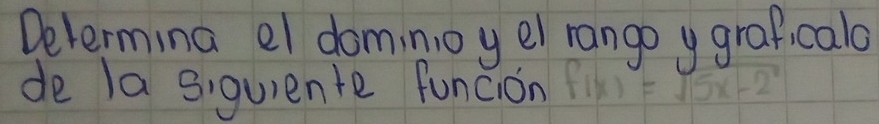 Determina el dominio y el rango y graficalo
de la siguiente función f(x) = √5x-2